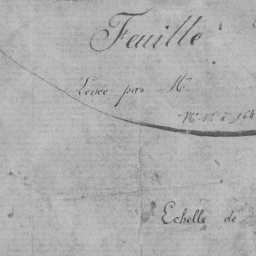 Feuille
Levée par M
Echelle de